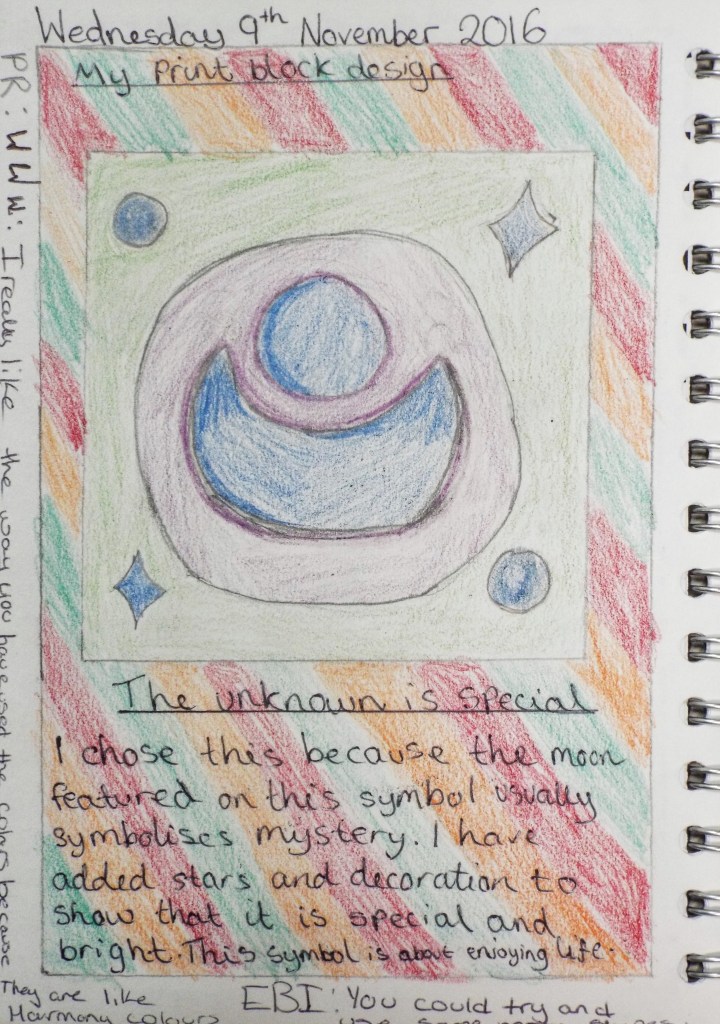 Wednesday 9th November 2016
My print block design
The unknown is special
I chose this because the moon
featured on this symbol usually
symbolises mystery. I have
added stars and decoration to
show that it is special and
bright. This symbol is about enjoying life.
PR: WWW: I really like the way you have used the colors because
They are like
Harmony colours
EBI: You could try and
use some